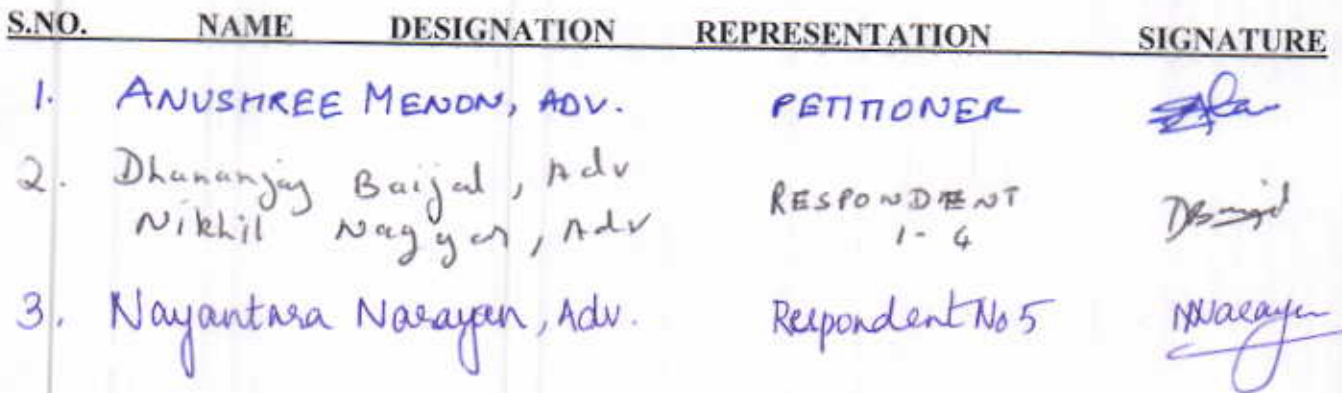 S.NO. NAME DESIGNATION REPRESENTATION SIGNATURE
1. ANUSHREE MENON, ADV. PETITIONER
2. Dhananjay Baijal, Adv
Nikhil Nayyar, Adv RESPONDENT
1-4
3. Nayantara Narayan, Adv. Respondent No 5 NNarayan